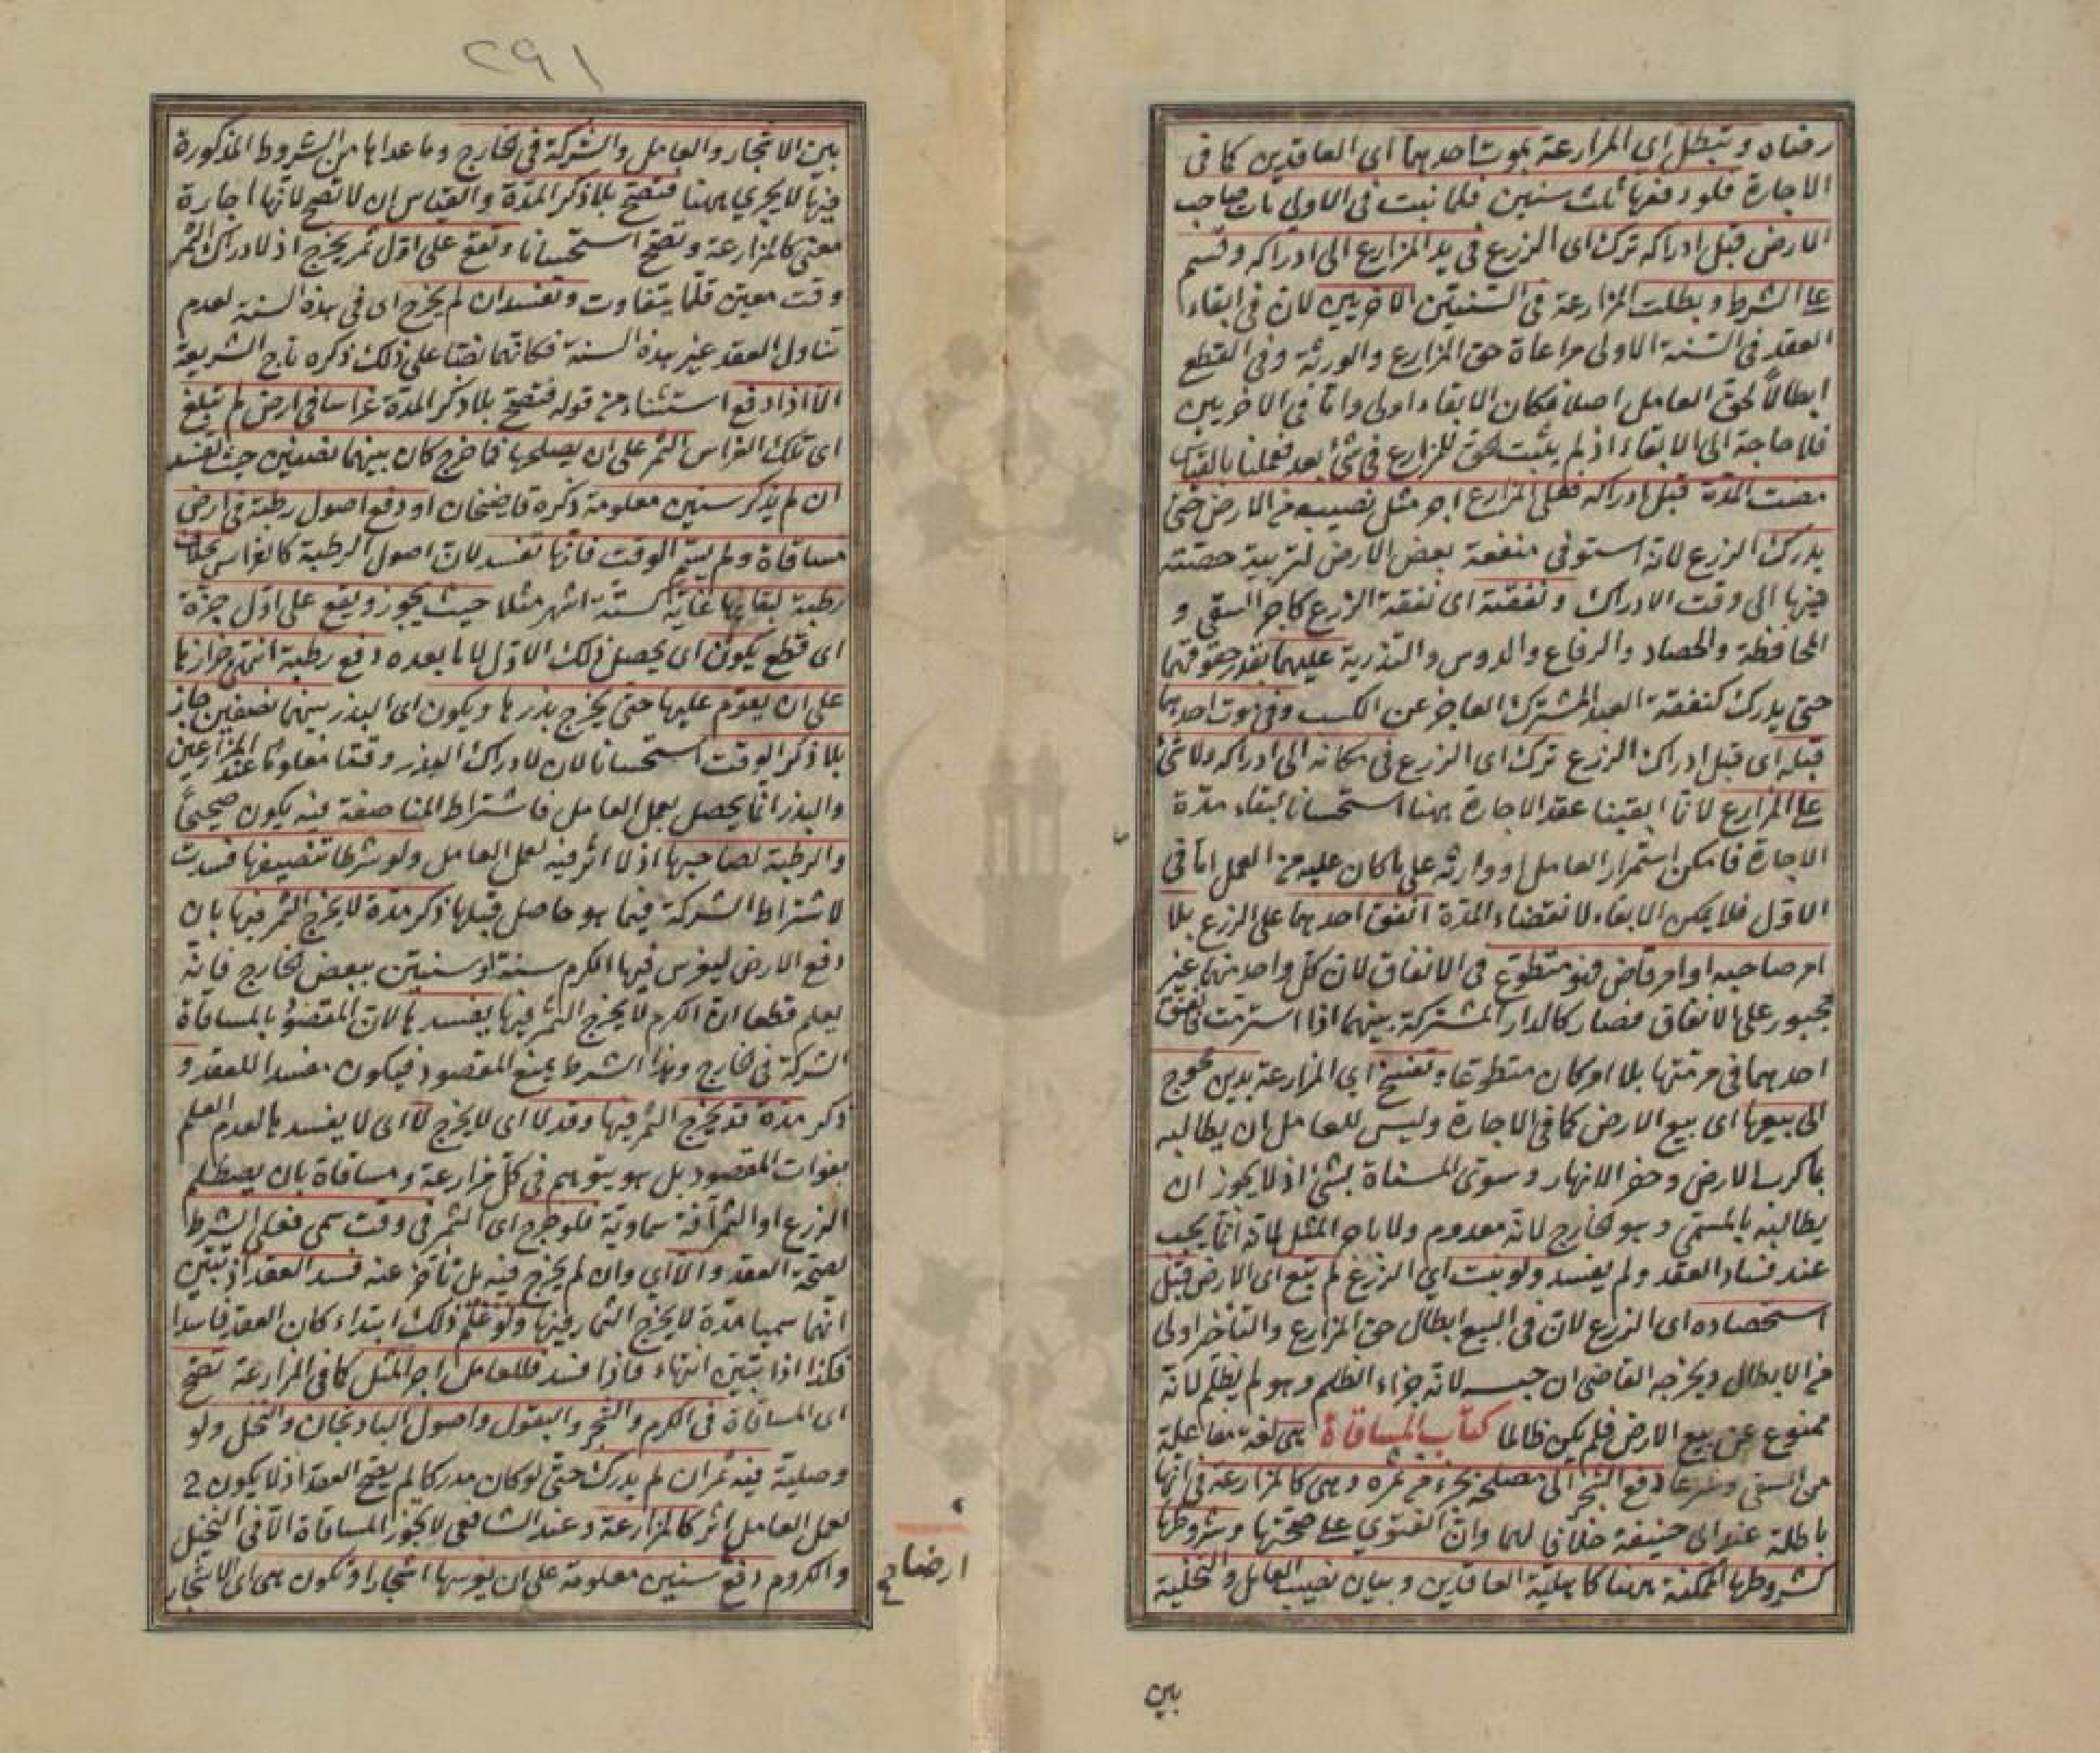 رضاه وتبطل اى المزارعة بموت احدهما اى العاقدين كما فى
الاجارة فلو دفعها ثلث سنين فلما نبت فى الاولى مات صاحب
الارض قبل ادراكه ترك اى الزرع فى يد المزارع الى ادراكه وقسم
على الشرط وبطلت المزارعة فى السنتين الاخريين لان فى ابقاء
العقد فى السنة الاولى مراعاة حق المزارع والورثة وفى القطع
ابطالاً لحق العامل اصلا فكان الابقاء اولى واما فى الاخريين
فلا حاجة الى الابقاء اذ لم يثبت حق للمزارع فى شئ بعد فعملنا بالقياس
مضت المدة قبل ادراكه فعلى المزارع اجر مثل نصيبه من الارض حتى
يدرك الزرع لانه استوفى منفعة بعض الارض لتربية حصته
فيها الى وقت الادراك ونفقته اى نفقة الزرع كاجر السقى و
المحافظة والحصاد والرفاع والدوس والتذرية عليهما بقدر حقوقهما
حتى يدرك كنفقة العبد المشترك العاجز عن الكسب وفى موت احدهما
قبله اى قبل ادراك الزرع ترك اى الزرع فى مكانه الى ادراكه ولا شئ
على المزارع لانا ابقينا عقد الاجارة ههنا استحسانا لبقاء مدة
الاجارة فامكن استمرار العامل او وارثه على ما كان عليه من العمل اما فى
الاول فلا يمكن الابقاء لانقضاء المدة انفق احدهما على الزرع بلا
امر صاحبه او امر قاض فهو متطوع فى الانفاق لان كل واحد منهما غير
مجبور على الانفاق فصار كالدار المشتركة بينهما اذا استرمت فانفق
احدهما فى مرمتها بلا امر كان متطوعا وتفسخ اى المزارعة بدين محوج
الى بيعها اى بيع الارض كما فى الاجارة وليس للعامل ان يطالبه
بما كرب الارض وحفر الانهار وسوى المسناة بشئ اذ لا يجوز ان
يطالبه بالمسمى وهو الخارج لانه معدوم ولا باجر المثل لانه انما يجب
عند فساد العقد ولم يفسد ولو نبت اى الزرع لم تبع اى الارض قبل
استحصاده اى الزرع لان فى البيع ابطال حق المزارع والتأخير اولى
من الابطال ويخرجه القاضى ان حبسه لانه جزاء الظلم وهو لم يظلم لانه
ممنوع عن بيع الارض فلم يكن ظالما كتاب المساقاة هى لغة مفاعلة
من السقى وشرعا دفع الشجر الى مصلحه بجزء من ثمره وهى كالمزارعة فى انها
باطلة عند ابى حنيفة خلافا لهما وان الفتوى على صحتها وشروطها
كشروطها الممكنة ههنا كاهلية العاقدين وبيان نصيب العامل والتخلية
بين
٢٩١
بين الاشجار والعامل والشركة فى الخارج وما عداها من الشروط المذكورة
فيها لا يجرى ههنا فتصح بلا ذكر المدة والقياس ان لا تصح لانها اجارة
معنى كالمزارعة وتصح استحسانا وتقع على اول ثمر يخرج اذ لادراك الثمر
وقت معين قلما يتفاوت وتفسد ان لم يخرج اى فى هذه السنة لعدم
تناول العقد غير هذه السنة فكانهما نصا على ذلك ذكره تاج الشريعة
الا اذا دفع استثناء من قوله فتصح بلا ذكر المدة غراسا فى ارض لم تبلغ
اى تلك الغراس الثمر على ان يصلحها فما خرج كان بينهما نصفين حيث تفسد
ان لم يذكر سنين معلومة ذكره قاضيخان او دفع اصول رطبة فى ارض
مساقاة ولم يسم الوقت فانها تفسد لان اصول الرطبة كالغراس بخلاف
رطبة لبقائها غاية كستة اشهر مثلا حيث يجوز ويقع على اول جزة
اى قطع يكون اى يحصل ذلك الاول لا ما بعده دفع رطبة انتهى جزازها
على ان يقوم عليها حتى يخرج بذرها ويكون اى البذر بينهما نصفين جاز
بلا ذكر الوقت استحسانا لان لادراك البذر وقتا معلوما عند المزارعين
والبذر انما يحصل بعمل العامل فاشتراط المناصفة فيه يكون صحيحاً
والرطبة لصاحبها اذ لا اثر فيه لعمل العامل ولو شرطا تنصيفها فسدت
لاشتراط الشركة فيما هو حاصل قبلها ذكر مدة لا يخرج الثمر فيها بان
دفع الارض ليغرس فيها الكرم سنة او سنتين ببعض الخارج فانه
يعلم قطعا ان الكرم لا يخرج الثمر فيها يفسدها لان المقصود بالمساقاة
الشركة فى الخارج وهذا الشرط يمنع المقصود فيكون مفسدا للعقد و
ذكر مدة قد يخرج الثمر فيها وقد لا اى لا يخرج لا اى لا يفسدها لعدم العلم
بفوات المقصود بل هو يتوهم فى كل مزارعة ومساقاة بان يصطلم
الزرع او الثمر آفة سماوية فلو خرج اى الثمر فى وقت سمى فعلى الشرط
لصحة العقد والا اى وان لم يخرج فيه بل تأخر عنه فسد العقد اذ تبين
انهما سميا مدة لا يخرج الثمار فيها ولو علم ذلك ابتداء كان العقد فاسدا
فكذا اذا تبين انتهاء فاذا فسد فللعامل اجر المثل كما فى المزارعة تصح
اى المساقاة فى الكرم والشجر والبقول واصول الباذنجان والنخل ولو
وصلية فيه ثمران لم يدرك حتى لو كان مدركا لم يصح العقد اذ لا يكون ح
لعمل العامل اثر كالمزارعة وعند الشافعى لا يجوز المساقاة الا فى النخيل
والكروم دفع سنين معلومة على ان يغرسها اشجارا وتكون هى اى الاشجار
ارضا صح